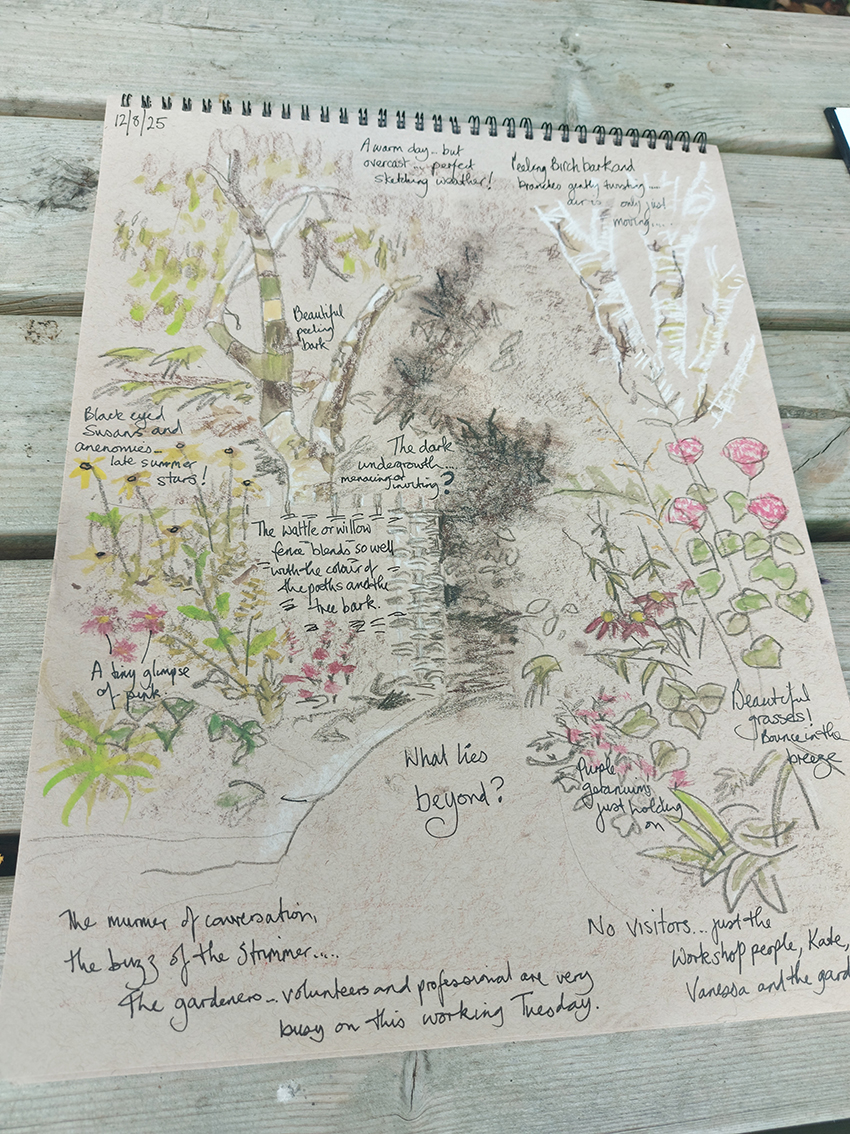 12/8/25
A warm day... but
overcast... perfect
sketching weather!
Peeling Birch bark and
branches gently twisting...
air is only just
moving....
Beautiful
peeling
bark
Black eyed
Susans and
anenomies...
late summer
stars!
The dark
undergrowth...
menacing or
inviting?
The wattle or willow
fence blends so well
with the colour of
the paths and the
tree bark.
A tiny glimpse
of pink.
What lies
beyond?
Beautiful
grasses!
Bounce in the
breeze
Purple
geraniums
just holding
on
The murmer of conversation,
the buzz of the strimmer.....
The gardeners... volunteers and professional are very
busy on this working Tuesday.
No visitors... just the
workshop people, Kate,
Vanessa and the gard